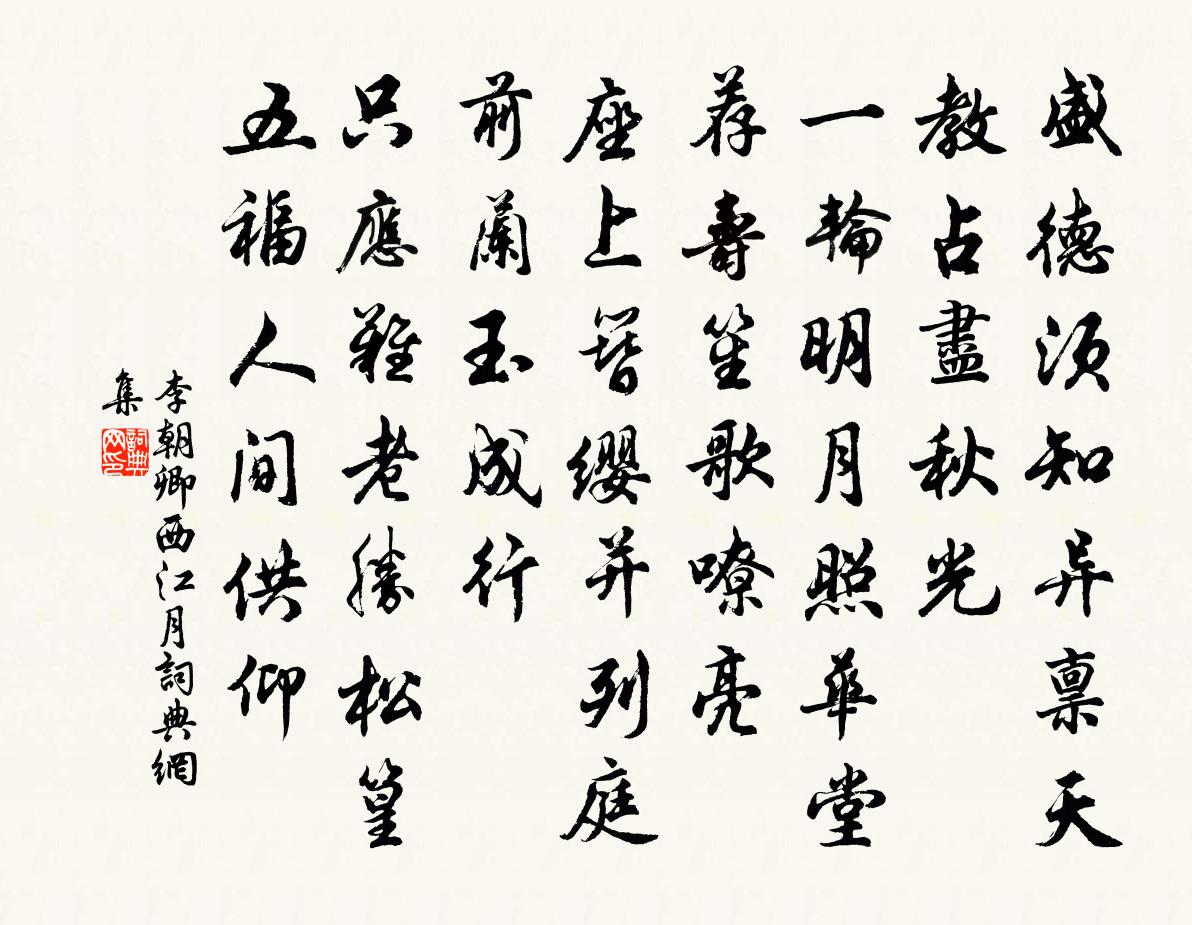 盛德须知异禀天
教占盡秋光
一輪明月照華堂
荐壽笙歌嘹亮
座上簪缨并列庭
前蘭玉成行
只應難老勝松篁
五福人间供仰
李朝卿西江月詞典網
集
詞典网印